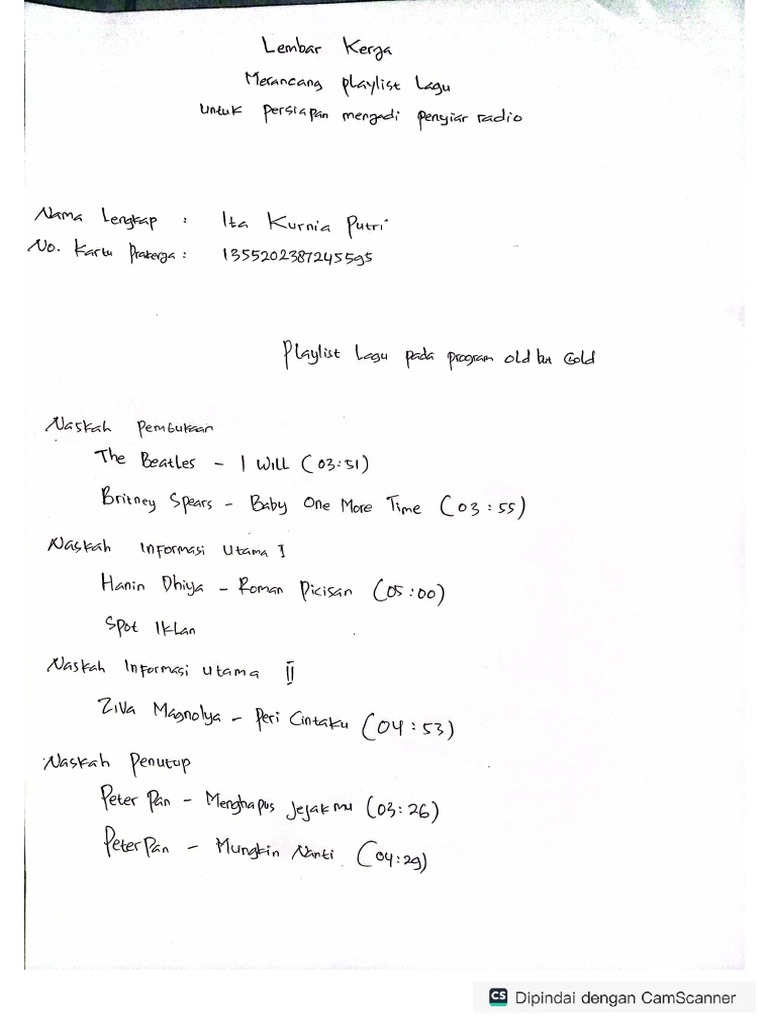 Lembar Kerja
Merancang playlist Lagu
untuk persiapan menjadi penyiar radio
Nama Lengkap : Ita Kurnia Putri
No. Kartu Prakerja : 1355202387245595
Playlist Lagu pada program old but Gold
Naskah Pembukaan
The Beatles - I Will (03:51)
Britney Spears - Baby One More Time (03:55)
Naskah Informasi Utama I
Hanin Dhiya - Roman Picisan (05:00)
Spot Iklan
Naskah Informasi Utama II
Ziva Magnolya - Peri Cintaku (04:53)
Naskah Penutup
Peter Pan - Menghapus Jejakmu (03:26)
Peter Pan - Mungkin Nanti (04:29)
CS Dipindai dengan CamScanner